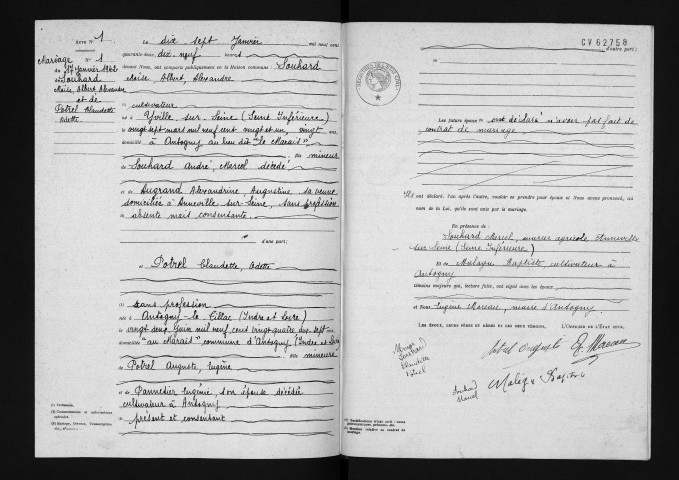 Acte N° 1
Mariage N° 1
du 17 Janvier 1942
de Souhard
Moïse, Albert, Alexandre
et de
Potrel Claudette
Odette
Le dix sept Janvier mil neuf cent
quarante-deux, dix neuf heures
devant Nous, ont comparu publiquement en la Maison commune : Souhard
Moïse, Albert, Alexandre
(1) cultivateur
né à Yville-sur-Seine (Seine Inférieure)
le vingt sept mars mil neuf cent vingt et un, vingt ans
domicilié à Antogny au lieu dit "le Marais"
fils mineur
de Souhard André, Marcel décédé
et de Augrand Alexandrine Augustine sa veuve
domiciliée à Anneville sur-Seine, sans profession
absente mais consentante
d'une part ;
et Potrel Claudette, Odette
(1) sans profession
née à Antogny-le Tillac (Indre et Loire)
le vingt deux Juin mil neuf cent vingt quatre dix-sept ans
"au Marais" commune d'Antogny (Indre et Loire)
fille mineure
de Potrel Auguste, Eugène
et de Pannetier Eugénie, son épouse décédée
cultivateur à Antogny
présent et consentant
(1) Profession.
CV 62758
d'autre part ;
Les futurs époux ont déclaré n'avoir pas fait de
contrat de mariage
Ils ont déclaré, l'un après l'autre, vouloir se prendre pour époux et Nous avons prononcé, au
nom de la Loi, qu'ils sont unis par le mariage.
En présence de :
Souhard Marcel, ouvrier agricole Anneville
sur Seine (Seine Inférieure)
Et de Baptiste cultivateur à
Antogny
témoins majeurs qui, lecture faite, ont signé avec les époux
et Nous Eugène Moreau, maire d'Antogny
Les époux, leurs pères et mères et les deux témoins, L'Officier de l'État civil,
Souhard
Claudette
Potrel
Potrel Auguste
E. Moreau
Souhard
Marcel